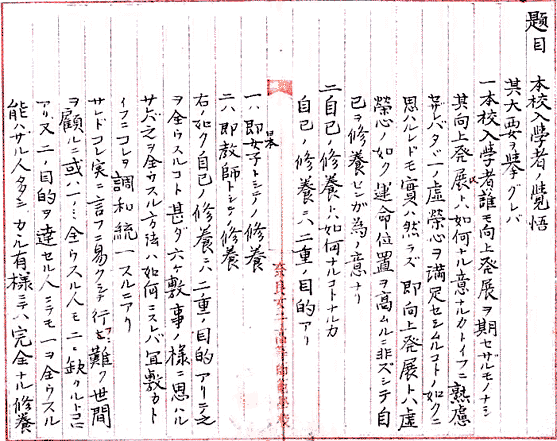 題目
本校入學者ノ覺悟
其大要ヲ挙グレバ
一本校入學者誰モ向上発展ヲ期セザルモノナシ
其向上発展トハ如何ナル意ナルカトイフニ熟慮
セザレバタダ一ノ虚榮心ヲ満足セシムルコトノ如クニ
思ハルレドモ實ハ然ラズ 即向上発展トハ虚
榮心ノ如ク運命位置ヲ高ムルニ非ズシテ自
己ヲ修養センガ為ノ意ナリ
二自己ノ修養トハ如何ナルコトナルカ
自己ノ修養ニハ二重ノ目的アリ
奈良女子高等師範學校
一ハ即日本女子トシテノ修養
二ハ即教師トシテノ修養
右ノ如ク自己ノ修養ニハ二重ノ目的アリテ之
ヲ全ウスルコト甚ダ六ヶ敷事ノ様ニ思ハル
サレバ之ヲ全ウスル方法ハ如何ニスレバ宜敷カト
イフニコレヲ調和統一スルニアリ
サレドコレ実ニ言フニ易クシテ行ヒ難ク世間
ヲ顧ルニ或ハ一ヲ全ウスル人モ二ヲ欠クルトコロ
アリ又二ノ目的ヲ達セル人ニテモ一ヲ全ウスル
能ハザル人多シ カカル有様ニテハ完全ナル修養